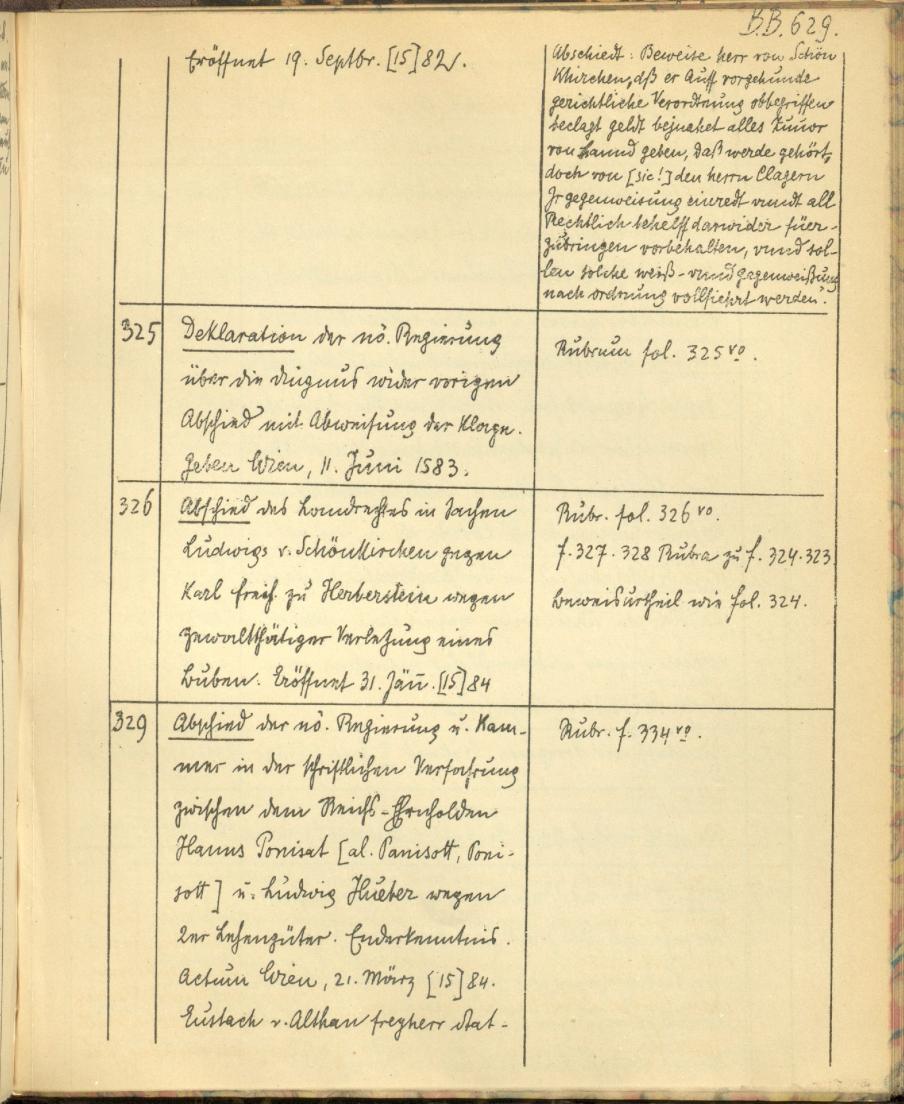 B.B. 629.
Eröffnet 19. Septbr. [15]82.
Abschiedt: Beweise herr von Schön
Khirchen, dß er Auff vorgehunde
gerichtliche Verordtnung obbegriffen
beclagt geldt bejnahet alles Zuuor
von hannd geben, daß werde gehört,
doch von [sic!] den herrn Clagern
Jr gegenweisung einredt vnndt all
Rechtlich behelff darwider füer-
zubringen vorbehalten, vnnd sol-
len solche weiß- vnnd gegenweißung
nach ordnung vollfiehrt werden".
325
Deklaration der nö. Regierung
über die dingnus wider vorigen
Abschied mit Abweisung der Klage.
Geben Wien, 11. Juni 1583.
Rubrum fol. 325 vo.
326
Abschied des Landrechtes in Sachen
Ludwigs v. Schönkirchen gegen
Karl freih. zu Herberstein wegen
gewaltthätiger Verletzung eines
Buben. Eröffnet 31. Jän. [15]84
Rubr. fol. 326 vo.
f. 327. 328 Rubra zu f. 324. 323
Beweisurtheil wie fol. 324.
329
Abschied der nö. Regierung u. Kam-
mer in der schriftlichen Verfahrung
zwischen dem Reichs-Ehrnholden
Hanns Ponisat [al. Panisott, Poni-
sott] u. Ludwig Hueber wegen
2er Lehengüter. Enderkenntnis.
Actum Wien, 21. März [15]84.
Eustach v. Althan freyherr stat-
Rubr. f. 334 vo.